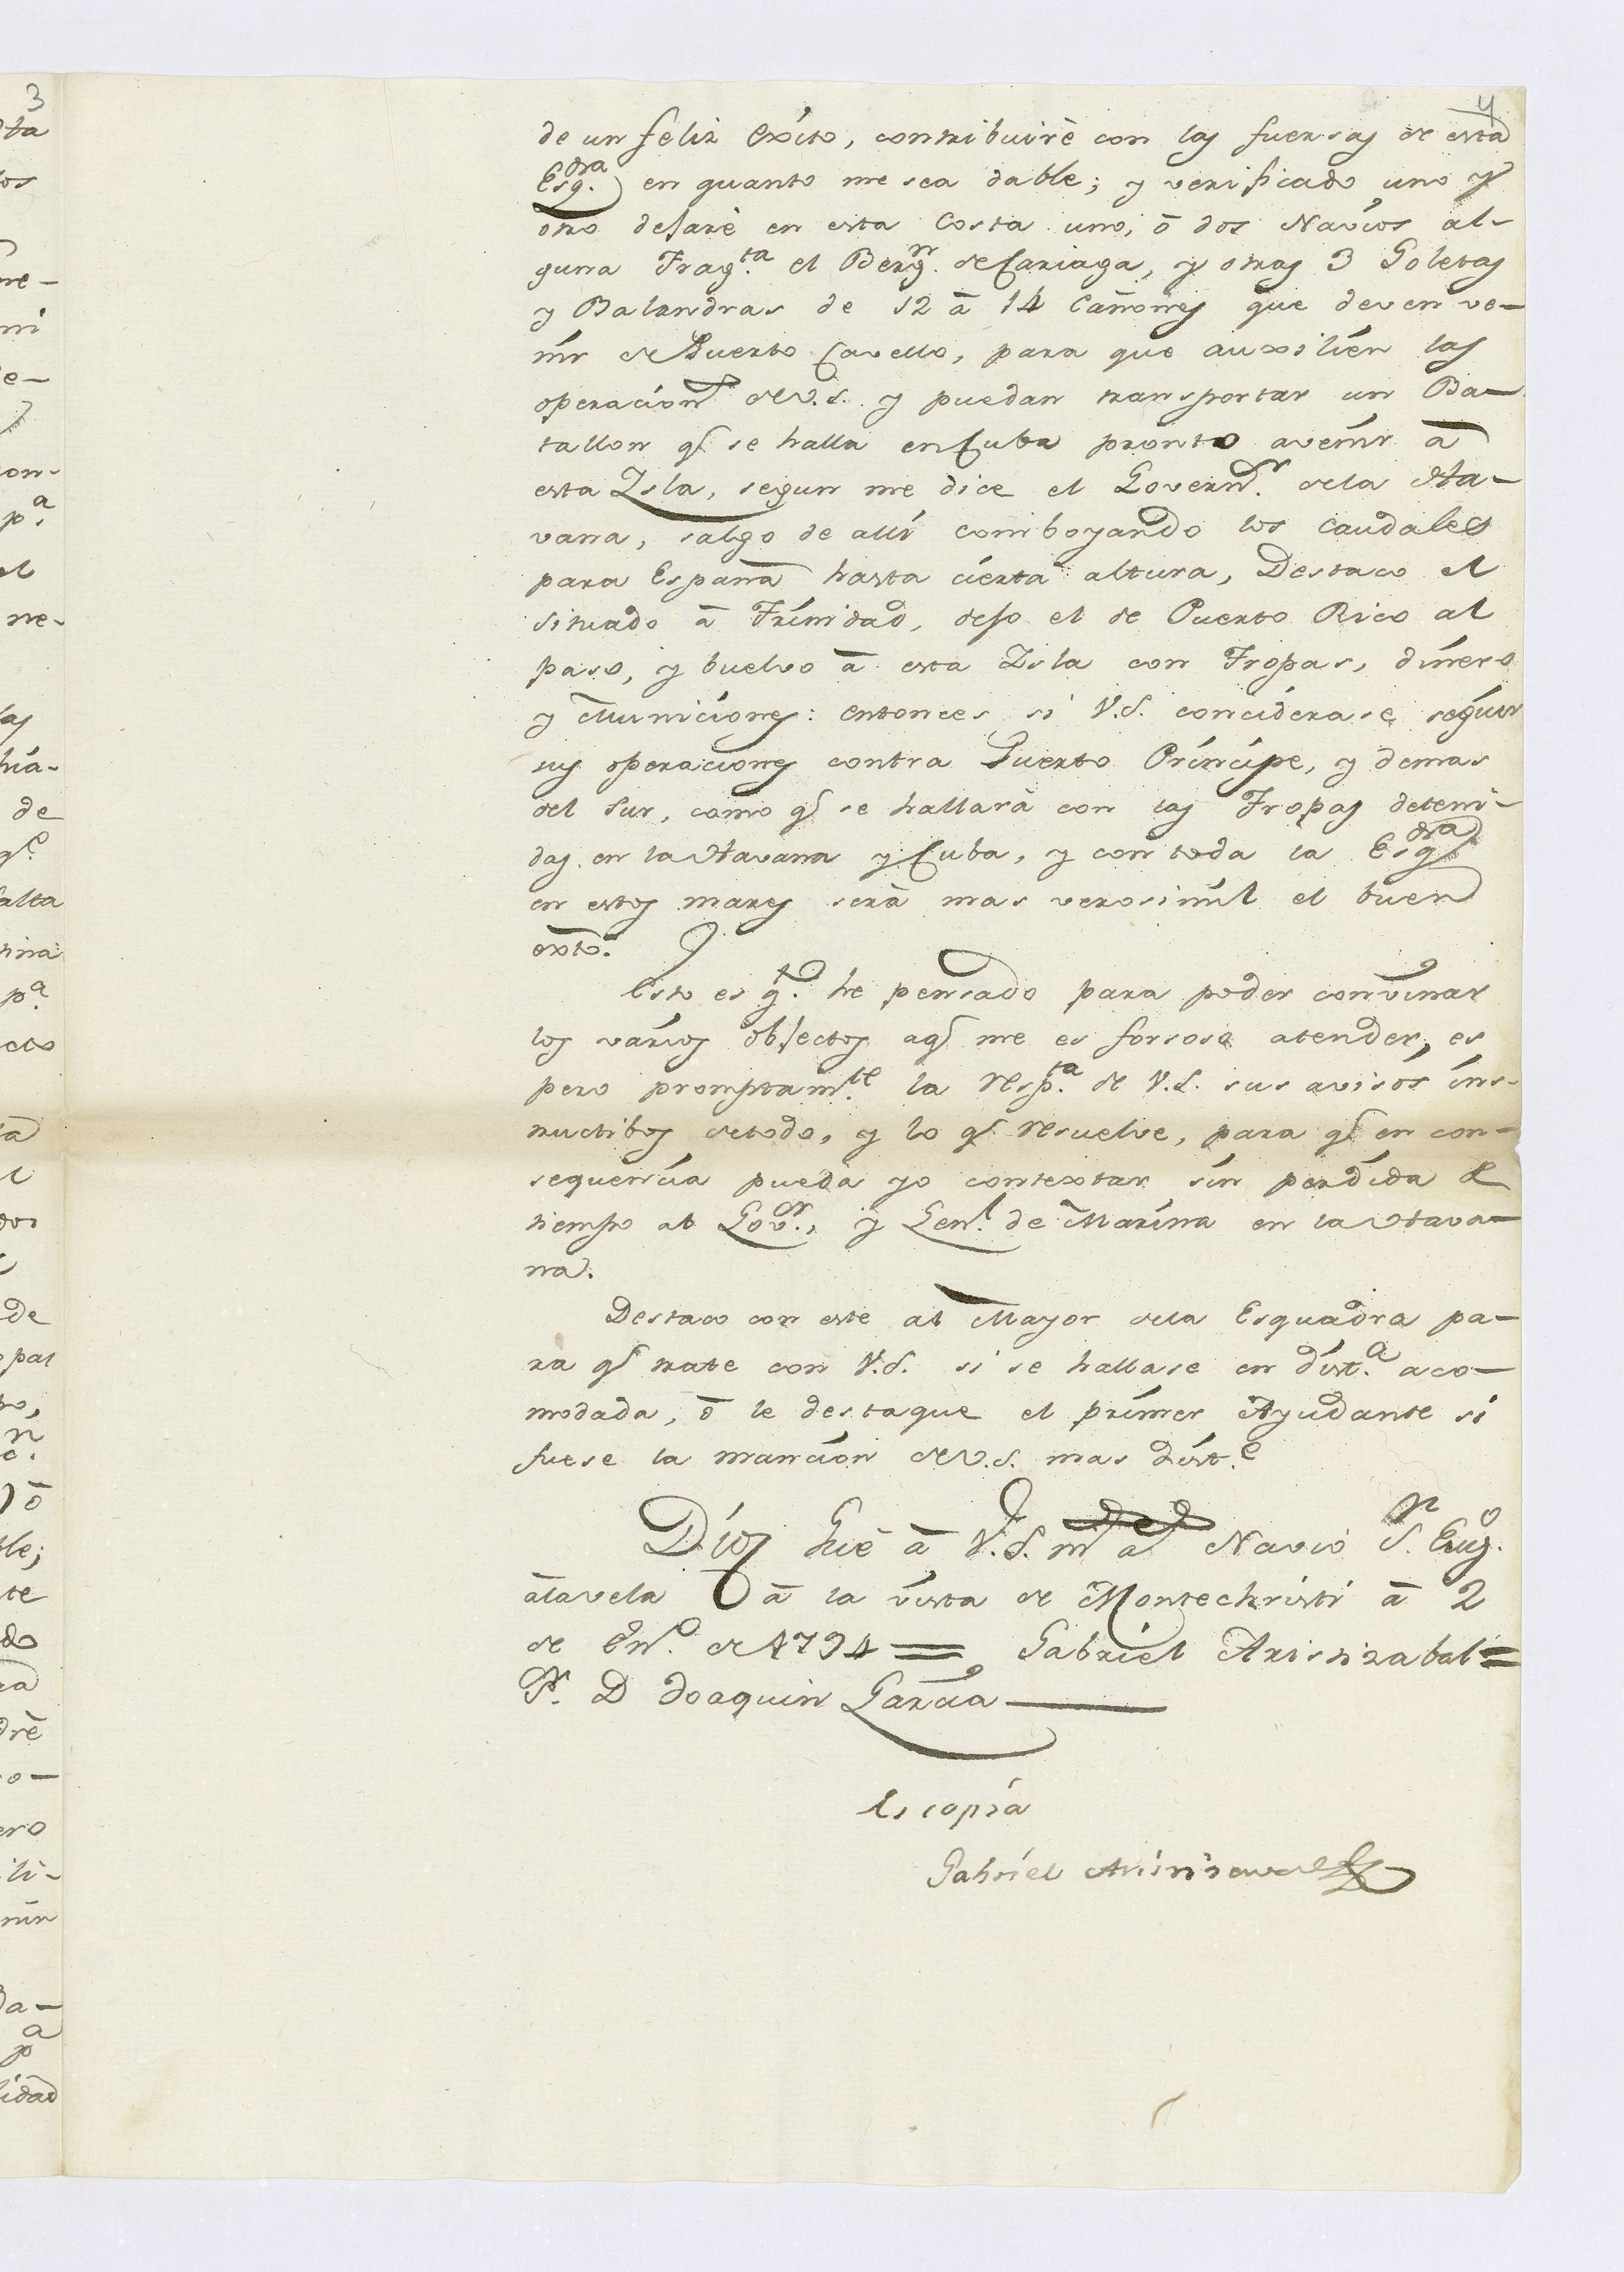 4
de un feliz éxito, contribuirè con las fuersas de esta
Esq.dra en quanto me sea dable; y verificado uno y
otro dejarè en esta Costa uno, ò dos Navios al-
guna Frag.ta el Berg.n de Cariaga, y otras 3 Goletas
y Balandras de 12 à 14 Cañones que deven ve-
nir de Puerto Cavello, para que auxilien las
operacion.s de V.S. y puedan transportar un Ba-
tallon q.e se halla en Cuba pronto avenir à
esta Isla, segun me dice el Governd.r dela Ha-
vana, salgo de alli comboyando los caudales
para España hasta cierta altura, Destaco el
situado à Trinidad, dejo el de Puerto Rico al
paso, y buelvo à esta Isla con Tropas, dinero
y Municiones: entonces si V.S. conciderase seguir
sus operaciones contra Puerto Principe, y demas
del Sur, como q.e se hallarà con las Tropas deteni-
das en la Havana y Cuba, y con toda la Esq.dra
en estos mares serà mas verosimil el buen
exto.
Esto es q.to he pensado para poder convinar
los varios objectos aq.e me es forsoso atender, es
pero promptam.te la resp.ta de V.S. sus avisos ins-
tructibos detodo, y lo q.e resuelve, para q.e en con-
sequencia pueda yo contextar sin perdida de
tiempo al Gov.or, y Gen.l de Marina en la Hava-
na.
Destaco con este al Mayor dela Esquadra pa-
ra q.e trate con V.S. si se hallase en dist.a aco-
modada, ò le destaque el primer Ayudante si
fuese la mancion de V.S. mas dist.e
Dios gûe à V.S. m.s a.s Navio S.n Eug.o
àlavela à la vista de Montechristi à 2
de En.o de 1794 = Gabriel Aristizabal =
S.r D Joaquin Garcia
Es copia
Gabriel Aristizaval